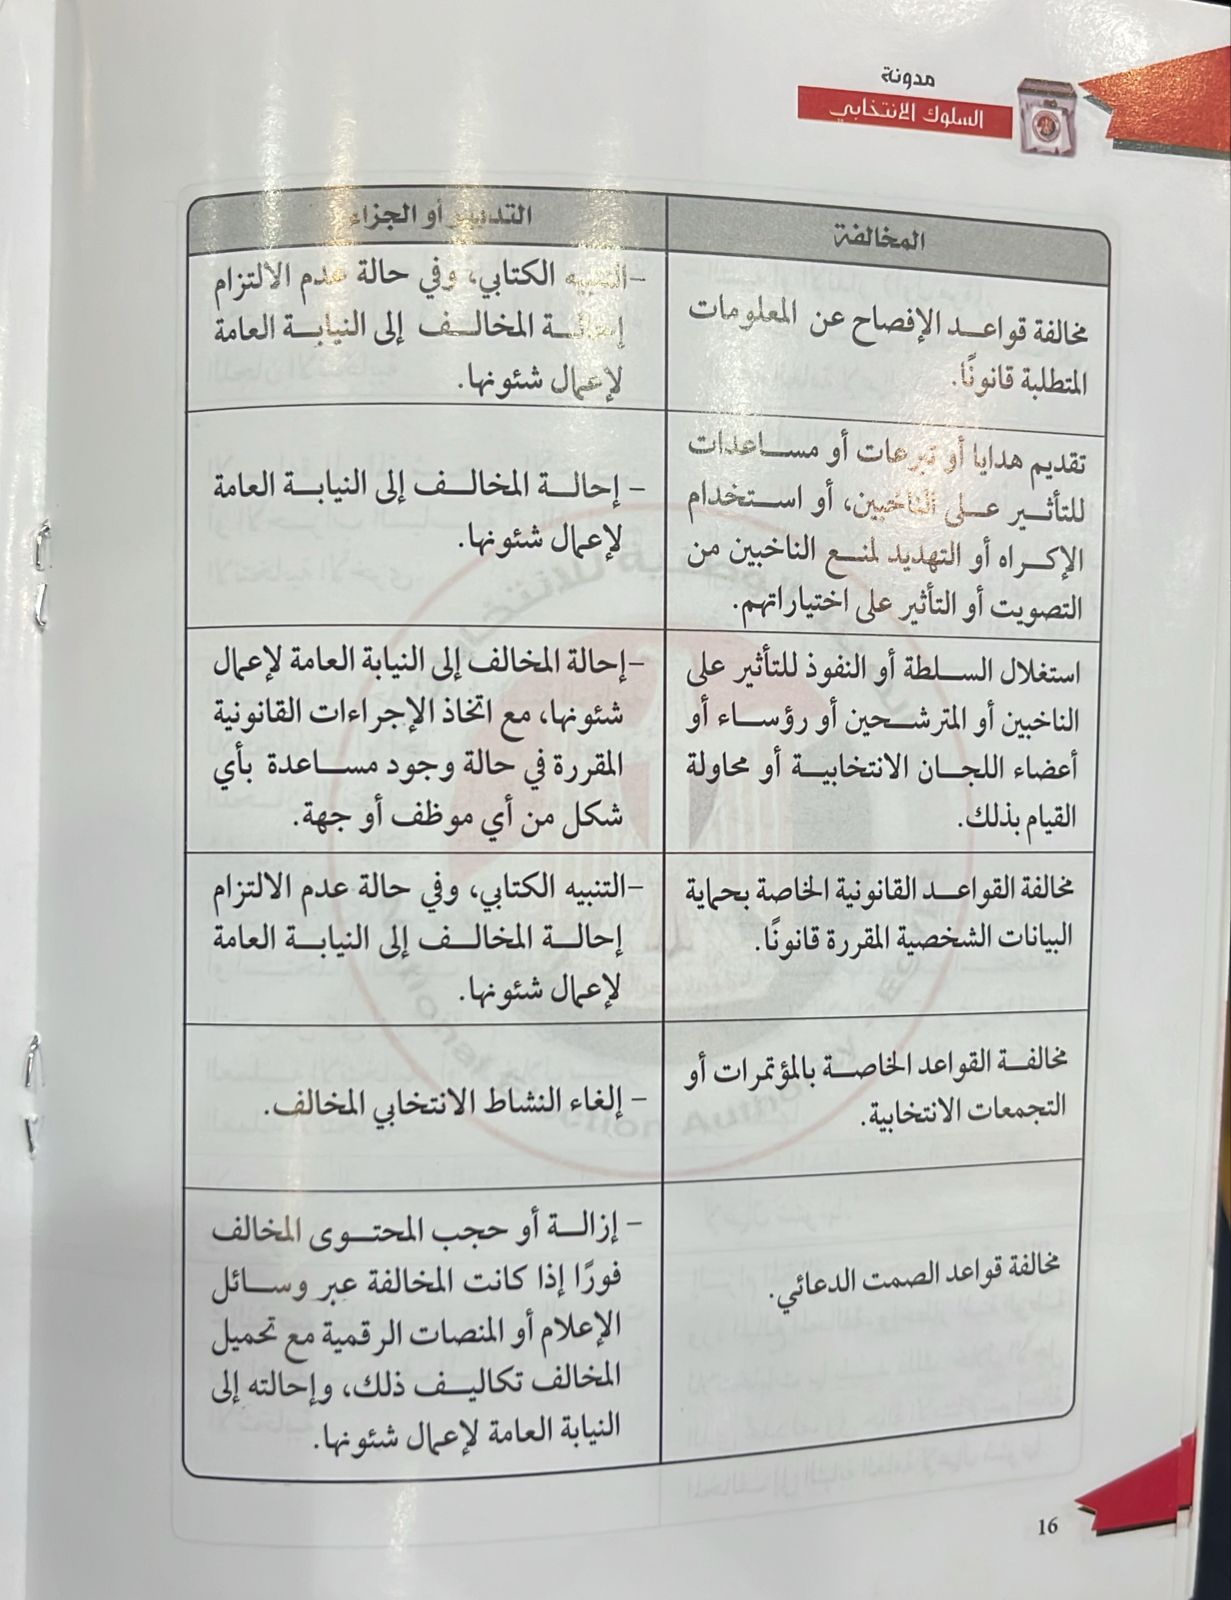 مدونة
السلوك الانتخابي
المخالفة
التدبير أو الجزاء
مخالفة قواعد الإفصاح عن المعلومات
المتطلبة قانونًا.
-التنبيه الكتابي، وفي حالة عدم الالتزام
إحالة المخالف إلى النيابة العامة
لإعمال شئونها.
تقديم هدايا أو تبرعات أو مساعدات
للتأثير على الناخبين، أو استخدام
الإكراه أو التهديد لمنع الناخبين من
التصويت أو التأثير على اختياراتهم.
- إحالة المخالف إلى النيابة العامة
لإعمال شئونها.
استغلال السلطة أو النفوذ للتأثير على
الناخبين أو المترشحين أو رؤساء أو
أعضاء اللجان الانتخابية أو محاولة
القيام بذلك.
-إحالة المخالف إلى النيابة العامة لإعمال
شئونها، مع اتخاذ الإجراءات القانونية
المقررة في حالة وجود مساعدة بأي
شكل من أي موظف أو جهة.
مخالفة القواعد القانونية الخاصة بحماية
البيانات الشخصية المقررة قانونًا.
-التنبيه الكتابي، وفي حالة عدم الالتزام
إحالة المخالف إلى النيابة العامة
لإعمال شئونها.
مخالفة القواعد الخاصة بالمؤتمرات أو
التجمعات الانتخابية.
- إلغاء النشاط الانتخابي المخالف.
مخالفة قواعد الصمت الدعائي.
- إزالة أو حجب المحتوى المخالف
فورًا إذا كانت المخالفة عبر وسائل
الإعلام أو المنصات الرقمية مع تحميل
المخالف تكاليف ذلك، وإحالته إلى
النيابة العامة لإعمال شئونها.
16